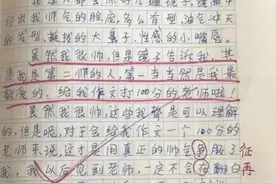 印出我帅气的脸庞，多么有型油气冲天
的发型，魁梧的大鼻子，性感的小嘴唇。
虽然我很帅，但是镜子告诉我，其
实我是第二帅的人，第一当当然是我最
敬爱的，给我作文打100分的老师啦！
虽然我很帅，这些我都是可以理解
的，但是呢，对于会给我作文一个100分的
老师来说，这才是用真正的帅会到服了征
我，我以后见到老师，一定不会在翻白再